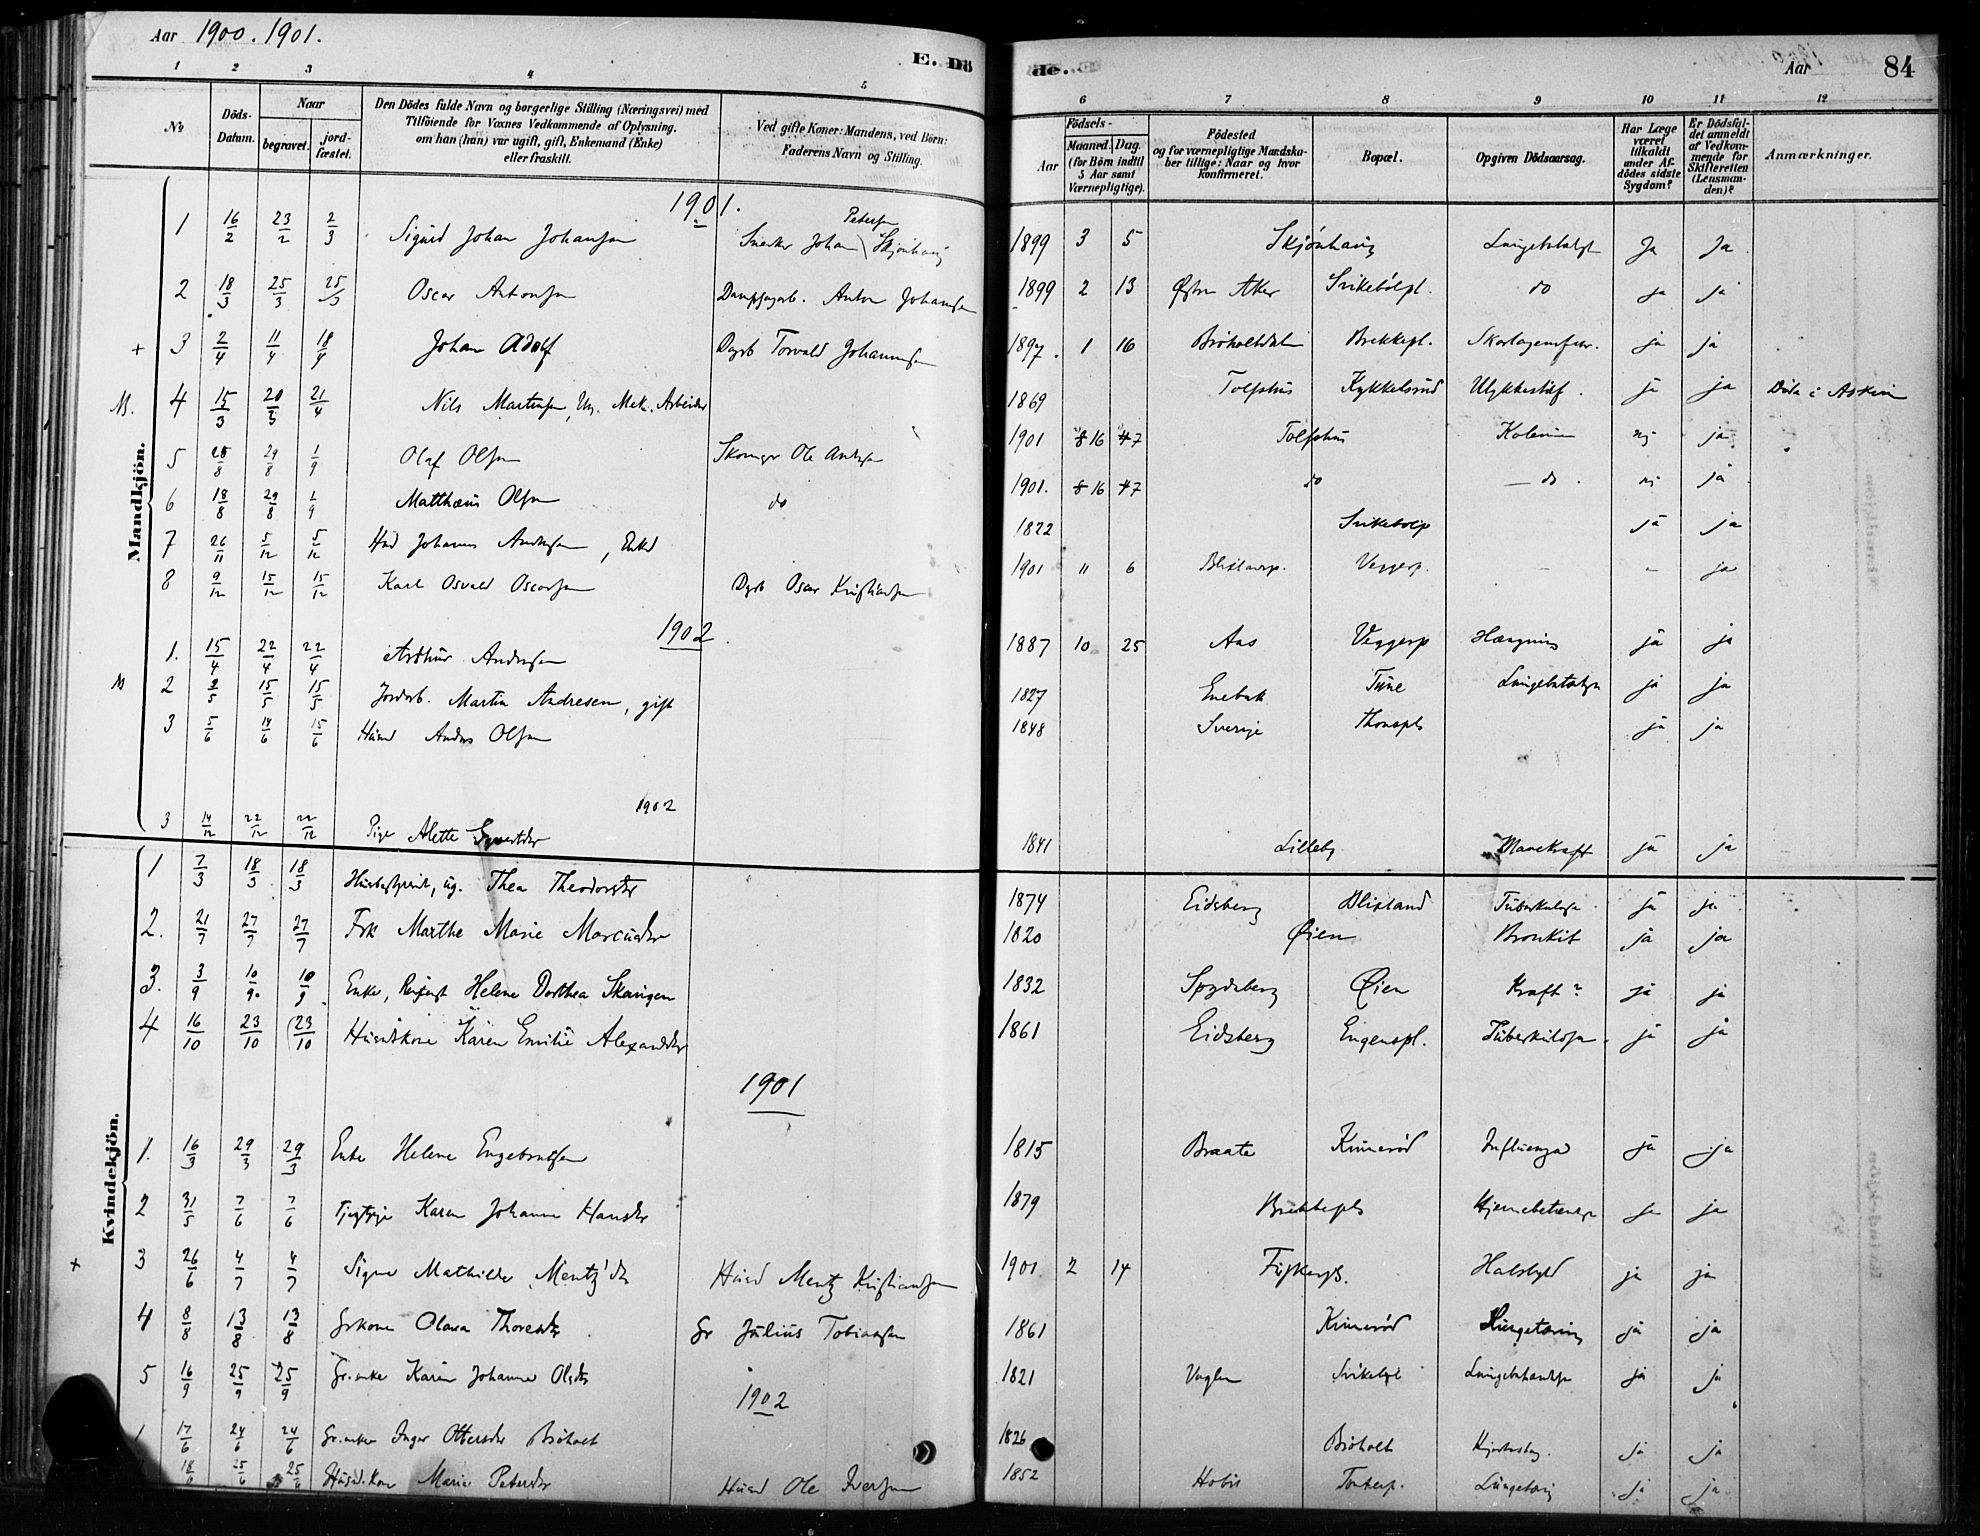 Aar 1900. 1901.
E. Dö
de.
Aar
84
1 2 3 4 5 6 7 8 9 10 11 12
No
Döds-Datum.
Naar
begravet.
jord-fæstet.
Den Dödes fulde Navn og borgerlige Stilling (Næringsvei) med
Tilföiende for Voxnes Vedkommende af Oplysning,
om han (hun) var ugift, gift, Enkemand (Enke)
eller fraskilt.
Ved gifte Koner: Mandens, ved Börn:
Faderens Navn og Stilling.
Födsels-
Aar
Maaned. Dag.
(for Börn indtil
5 Aar samt
Værnepligtige).
Födested
og for værnepligtige Mandska-
ber tillige: Naar og hvor
konfirmeret.
Bopæl.
Opgiven Dödsaarsag.
Har Læge
været
tilkaldt
under Af-
dödes sidste
Sygdom?
Er Dödsfal-
det anmeldt
af Vedkom-
mende for
Skifteretten
(Lensman-
den)?
Anmærkninger.
Mandkjön.
1901.
1 16/2 23/2 2/3 Sigurd Johan Johansen Snedker Johan Petersen Skjönhaug 1899 3 5 Skjönhaug Ja Ja
2 18/3 25/3 25/3 Oscar Antonsen Anton Johansen 1899 2 13 Østre Aker Svikebölpl. do ja ja
+ 3 2/4 11/4 18/4 Johan Adolf Dagb Torvald Johannesen 1897. 1 16 Brekkepl. ja ja
M. 4 15/3 20/3 21/4 Nils Martinsen, Ug. Mek. Arbeider 1869 Tolfshus Kykkelsrud ja ja Döde i Askim
5 /8 29/8 1/9 Olaf Olsen Ole 1901 8 16 4 7 Tolfshus nej ja
6 18/8 29/8 1/9 Matthæus Olsen do 1901. 8 16 4 7 do — do. nej ja
7 26/11 5/12 5/12 Johannes Andersen, Enkd 1822 Svikebölp ja ja
8 9/12 15/12 15/12 Karl Osvald Oscarsen Dagb Oscar Kristiansen 1901 11 6 Blixlandsp. Veggerp. – – ja
1902.
1. 15/4 22/4 22/4 Arthur Andersen 1887 10 25 Aas Veggerp Hængning ja ja
M 2 2/5 15/5 15/5 Jordarb. Martin Andresen, gift 1827 Enebak Tune ja ja
3 5/6 14/6 15/6 Husmd Anders Olsen 1848 Sverige ja ja
1902
3 14/12 22/12 22/12 Pige Alette 1841 Lilleby Mavekræft ja ja
Kvindekjön.
1 7/3 18/3 18/3 ug. Thea Theodorsdtr 1874 Eidsberg Blixland Tuberkulose ja ja
2. 21/7 27/7 27/7 Marthe Marie Marcusdtr 1820 Øien Bronkit ja ja
3. 3/9 10/9 10/9 Enke, Helene Dorthea Skaugen 1832 Spydeberg Øien Kræft? ja ja
4 16/10 23/10 23/10 Husmdskone Karen Emilie Alexandersdtr 1861 Eidsberg Engenspl. Tuberkulose ja ja
1901
1. 16/3 29/3 29/3 Enke Helene Engebretsen 1815 Braate Kinnerød Influenza ja ja
2 31/5 7/6 7/6 Karen Johanne Hansdtr 1879 Brekkepl. Hjernebetændelse ja ja
+ 3 26/6 4/7 4/7 Signe Mathilde Mentz'dtr Husmd Mentz Kristiansen 1901 2 14 Halsbyld ja ja
4 8/8 13/8 13/8 Grkone Olava Gr Julius Tobiassen 1861 Kinnerød Lungetæring ja ja
5 16/9 25/9 25/9 Gr.enke Karen Johanne Olsdtr 1821 ja ja
1902
1 17/6 24/6 24/6 Gr.enke Inger Ottersdtr Bröholt 1826 Bröholt ja ja
18/6 25/6 25/6 Husmd.kone Marie Petersdtr Husmd Ole Iversen 1852 Lungetæring ja ja